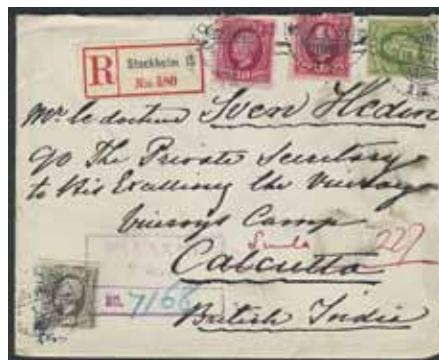 R Stockholm 15
No. 580
Mr. le docteur Sven Hedin
c/o The Private Secretary
to His Excellency the Viceroy
Viceroys Camp
Simla 227
Calcutta
No. 7166
British India